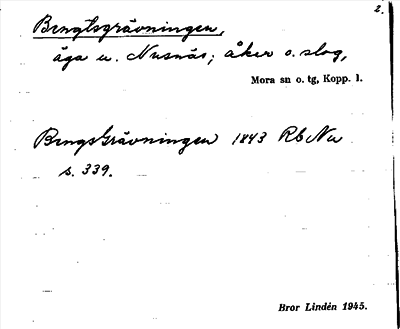 2.
Bengtsgrävningen,
äga u. Nusnäs; åker o. slog,
Mora sn o. tg, Kopp. l.
BengsGrävningen 1843 Rb Nu
s. 339.
Bror Lindén 1945.